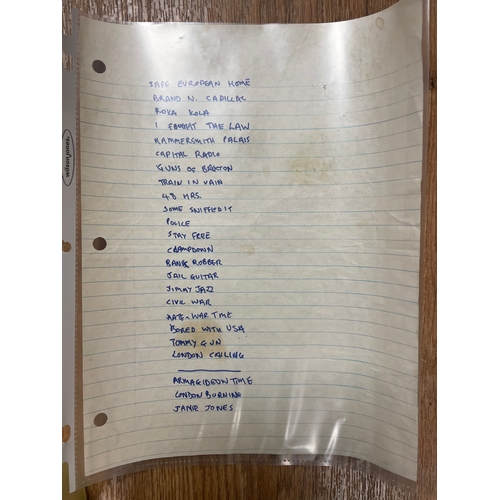 SAFE EUROPEAN HOME
BRAND N. CADILLAC
KOKA KOLA
I FOUGHT THE LAW
HAMMERSMITH PALAIS
CAPITAL RADIO
GUNS OF BRIXTON
TRAIN IN VAIN
48 HRS.
SOME
POLICE
STAY FREE
CLAMPDOWN
BANK ROBBER
JAIL GUITAR
JIMMY JAZZ
CIVIL WAR
HATE & WAR TIME
BORED WITH USA
TOMMY GUN
LONDON CALLING
ARMAGIDEON TIME
LONDON BURNING
JANIE JONES
wilson jones